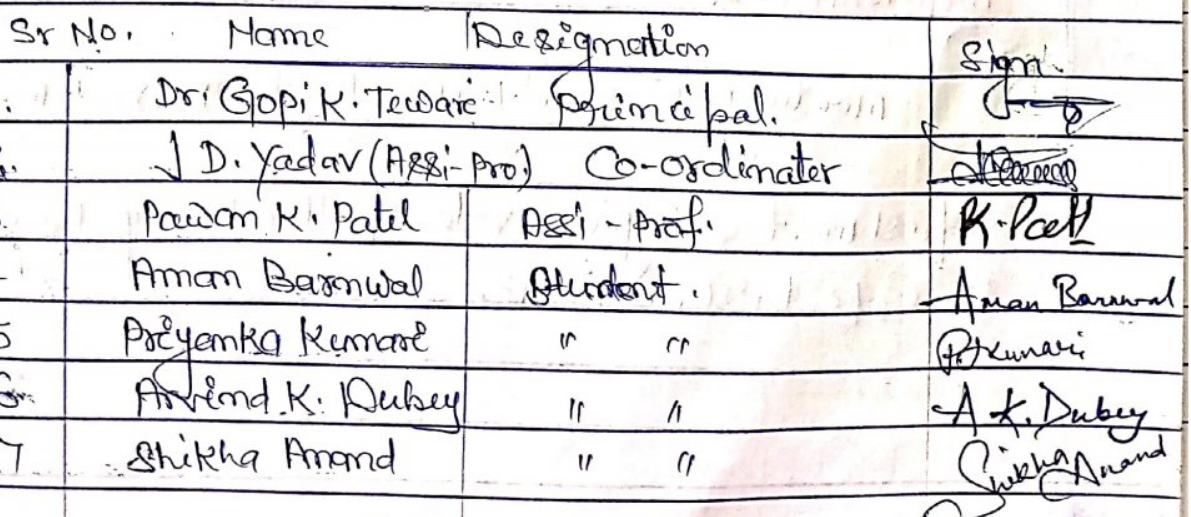 Sr No. Name Designation Sign.
Dr. Gopi K. Teware Principal.
J D. Yadav (Assi-Pro.) Co-ordinater
Pawan K. Patel Assi-Prof. K. Patl
Aman Barnwal Student. Aman Barnwal
5 Priyanka Kumare " " P. Kumari
6 Arvind K. Dubey " " A. K. Dubey
7 Shikha Anand " " Shikha Anand